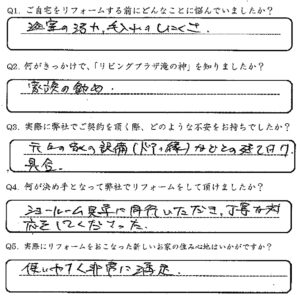 Q1. ご自宅をリフォームする前にどんなことに悩んでいましたか？
浴室の活力,手入れのしにくさ.
Q2. 何がきっかけで、「リビングプラザ滝の神」を知りましたか？
家族の勧め.
Q3. 実際に弊社でご契約を頂く際、どのような不安をお持ちでしたか？
元々の家の設備(ドア・縁)などとの建て付け
具合.
Q4. 何が決め手となって弊社でリフォームをして頂けましたか？
ショールーム見学に同行いただき,丁寧な対
応をしてくださった.
Q5. 実際にリフォームをおこなった新しいお家の住み心地はいかがですか？
使いやすく非常に満足.